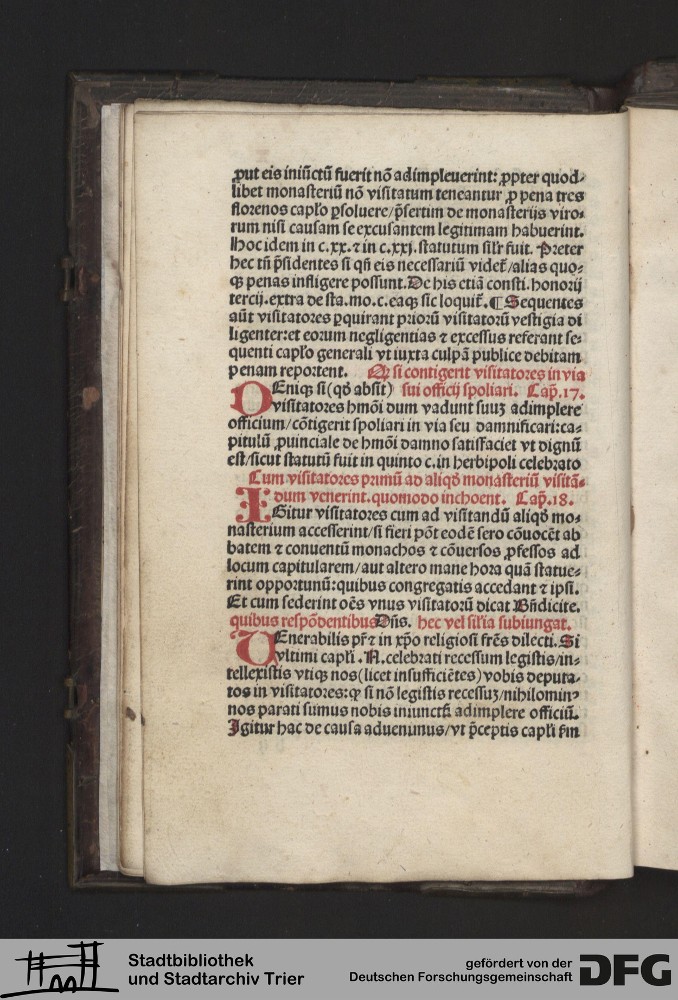 ꝓut eis iniūctū fuerit nō adimpleuerint: ꝓpter quod⸗
libet monasteriū nō visitatum teneantur ꝓ pena tres
florenos capło ꝑsoluere/p̄sertim de monasterijs viro⸗
rum nisi causam se excusantem legitimam habuerint.
Hoc idem in c.xx. ⁊ in c.xxj. statutum silr fuit. Preter
hec tn̄ p̄sidentes si qn̄ eis necessariū videt̄/alias quo⸗
qꝫ penas infligere possunt. De his etiā consti. honorij
tercij. extra de sta. mo. c. ea qꝫ sic loquit̄. ¶ Sequentes
aūt visitatores ꝑquirant priorū visitatorū vestigia di
ligenter: et eorum negligentias ⁊ excessus referant se⸗
quenti capło generali vt iuxta culpā publice debitam
penam reportent. Qꝫ si contigerit visitatores in via
DEniqꝫ si (qđ absit) sui officij spoliari. Cap̄. 17.
visitatores hmōi dum vadunt suuꝫ adimplere
officium/cōtigerit spoliari in via seu damnificari: ca⸗
pitulū ꝓuinciale de hmōi damno satisfaciet vt dignū
est/sicut statutū fuit in quinto c. in herbipoli celebrato
Cum visitatores primū ad aliqđ monasteriū visitā⸗
dum venerint. quomodo inchoent. Cap̄. 18.
IGitur visitatores cum ad visitandū aliqđ mo⸗
nasterium accesserint/si fieri pōt eodē sero cōuocēt ab
batem ⁊ conuentū monachos ⁊ cōuersos ꝓfessos ad
locum capitularem/aut altero mane hora quā statue⸗
rint opportunū: quibus congregatis accedant ⁊ ipsi.
Et cum sederint oēs vnus visitatorū dicat Bn̄dicite.
quibus respōdentibus Dn̄s. hec vel silia subiungat.
VEnerabilis pr̄ ⁊ in xp̄o religiosi frēs dilecti. Si
vltimi capłi .N. celebrati recessum legistis/in⸗
tellexistis vtiqꝫ nos (licet insufficiētes) vobis deputa⸗
tos in visitatores: qꝫ si nō legistis recessuꝫ/nihilominꝰ
nos parati sumus nobis iniunctū adimplere officiū.
Igitur hac de causa aduenimus/vt p̄ceptis capłi
Stadtbibliothek
und Stadtarchiv Trier
gefördert von der
Deutschen Forschungsgemeinschaft
DFG